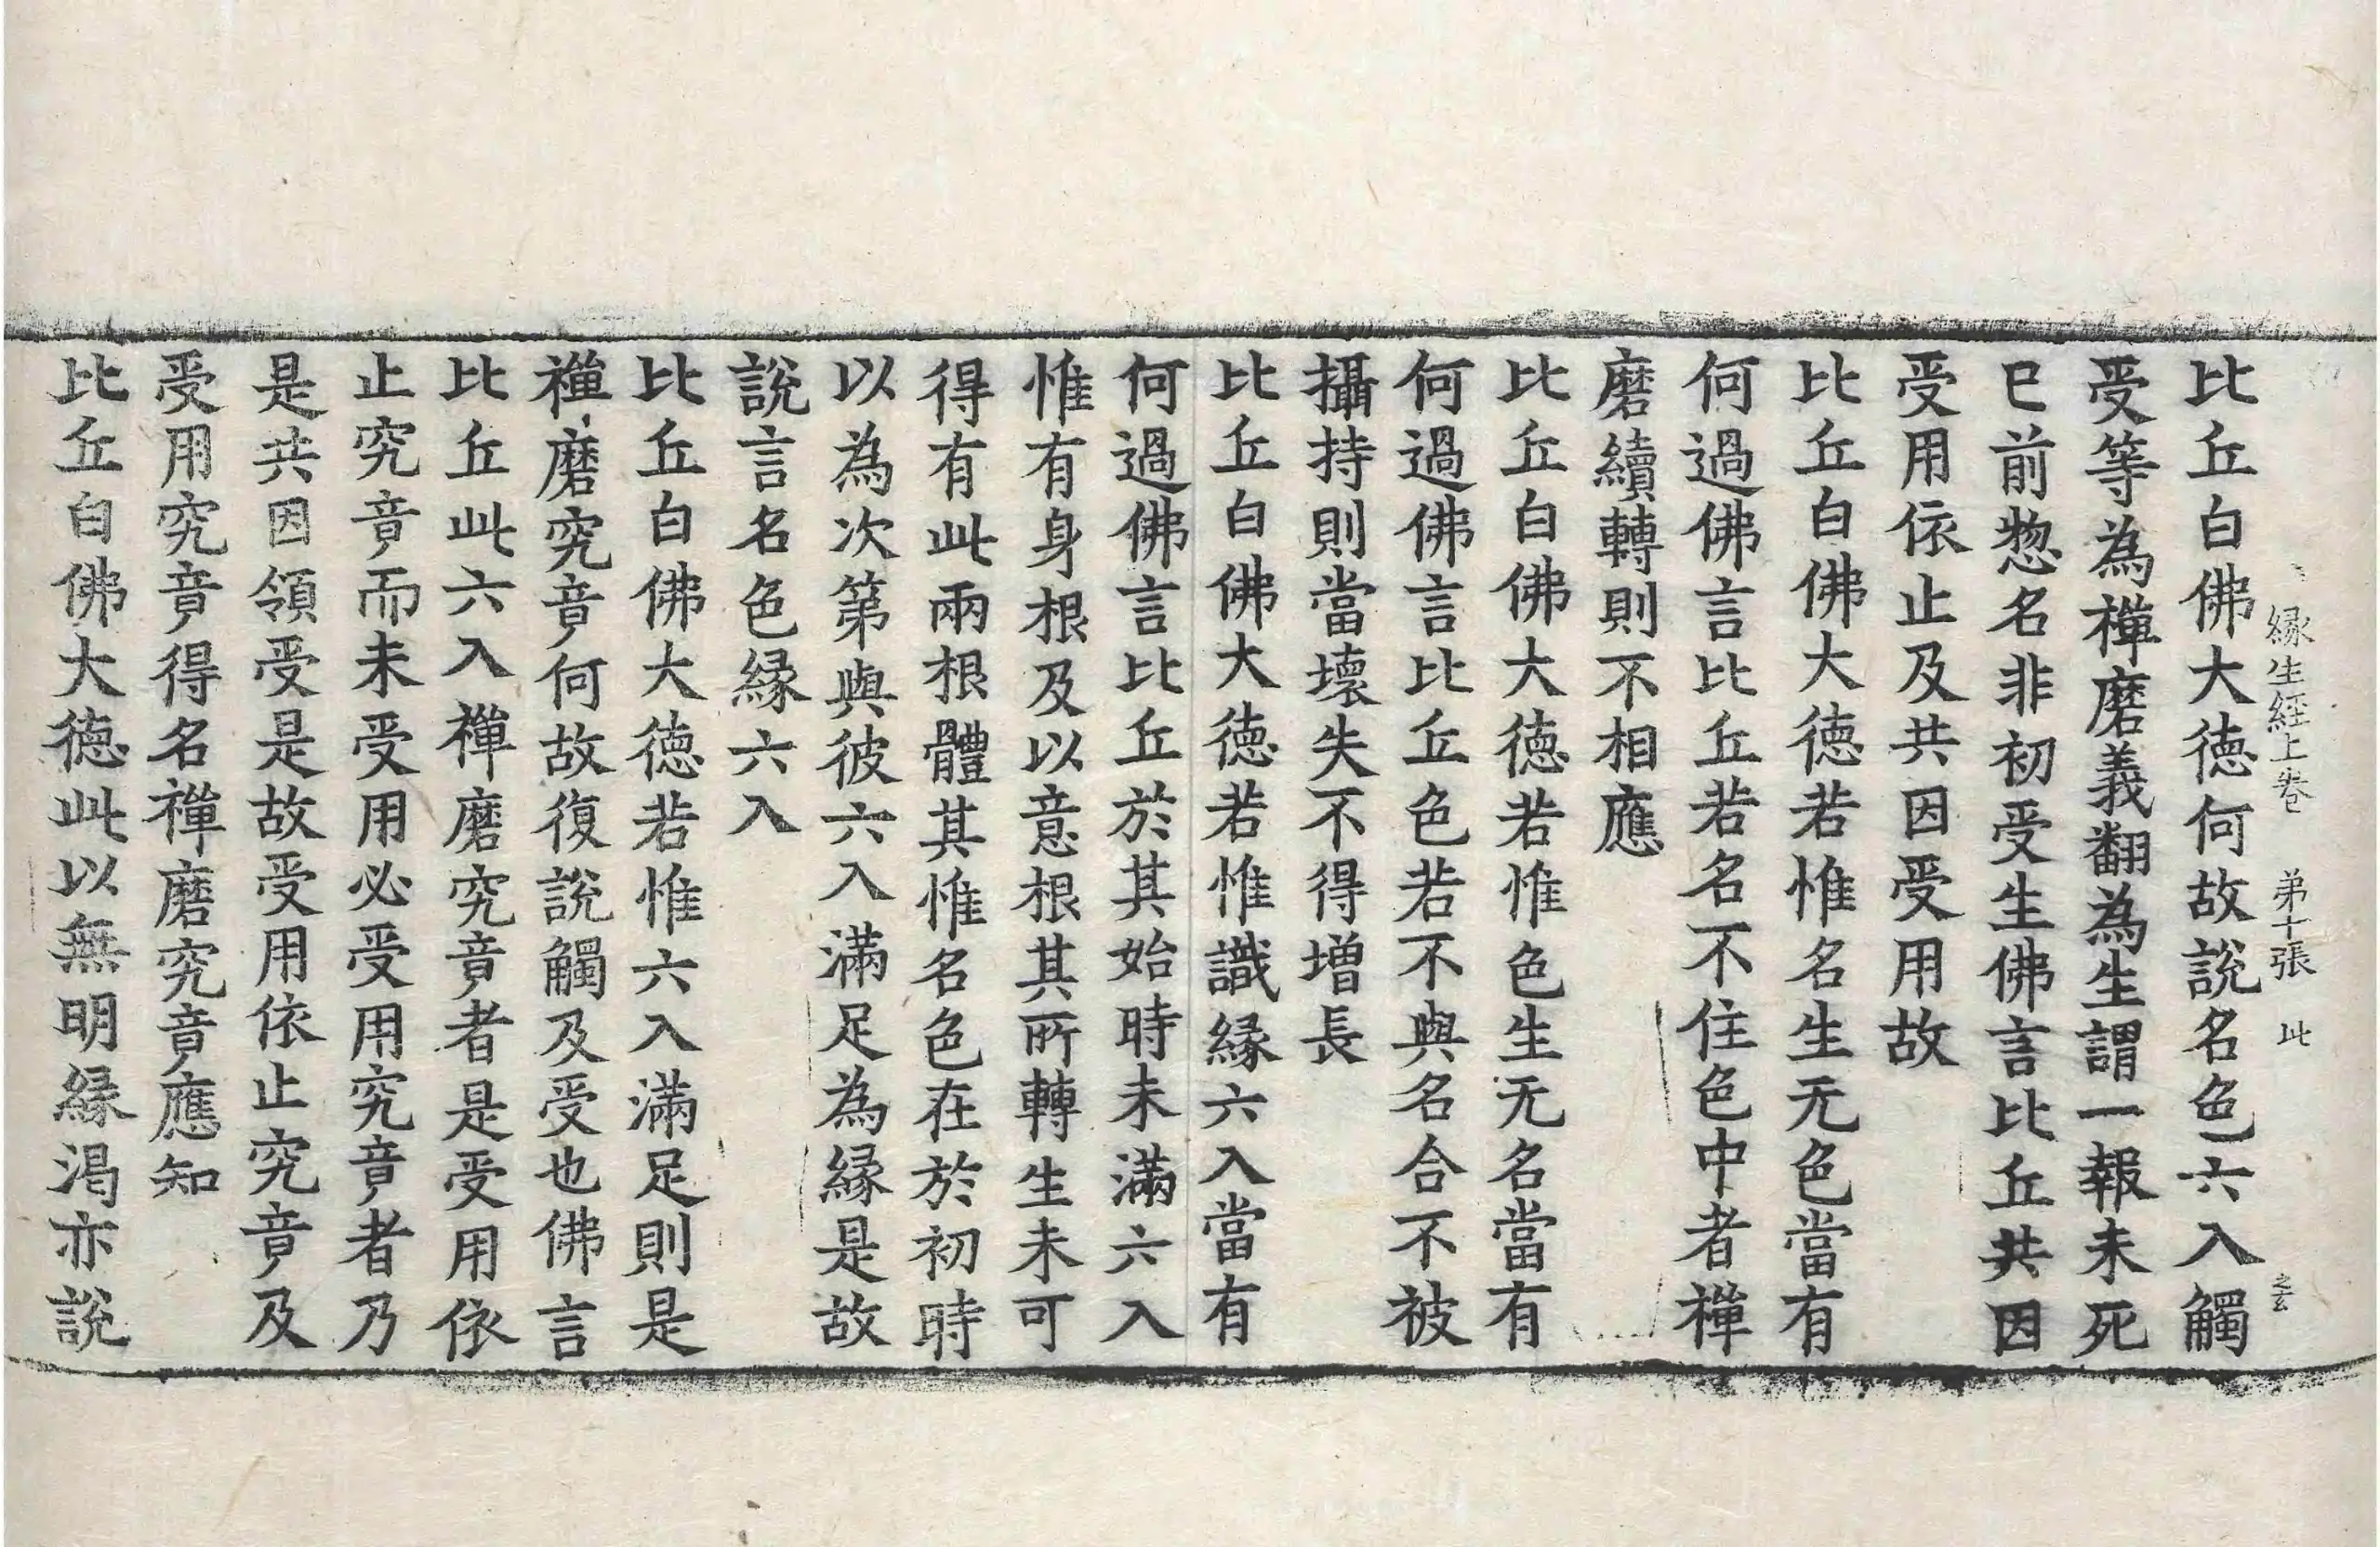 縁生経上卷 弟十張 此
比丘白佛大德何故說名色六入觸
受等為禪磨義翻為生謂一報未死
巳前惣名非初受生佛言比丘共因
受用依止及共因受用故
比丘白佛大德若惟名生无色當有
何過佛言比丘若名不住色中者禪
磨續轉則不相應
比丘白佛大德若惟色生无名當有
何過佛言比丘色若不與名合不被
攝持則當壞失不得增長
比丘白佛大德若惟識縁六入當有
何過佛言比丘於其始時未滿六入
惟有身根及以意根其所轉生未可
得有此兩根體其惟名色在於初時
以為次第與彼六入滿足為縁是故
說言名色縁六入
比丘白佛大德若惟六入滿足則是
禪磨究竟何故復說觸及受也佛言
比丘此六入禪磨究竟者是受用依
止究竟而未受用必受用究竟者乃
是共因領受是故受用依止究竟及
受用究竟得名禪磨究竟應知
比丘白佛大德此以無明縁渴亦說